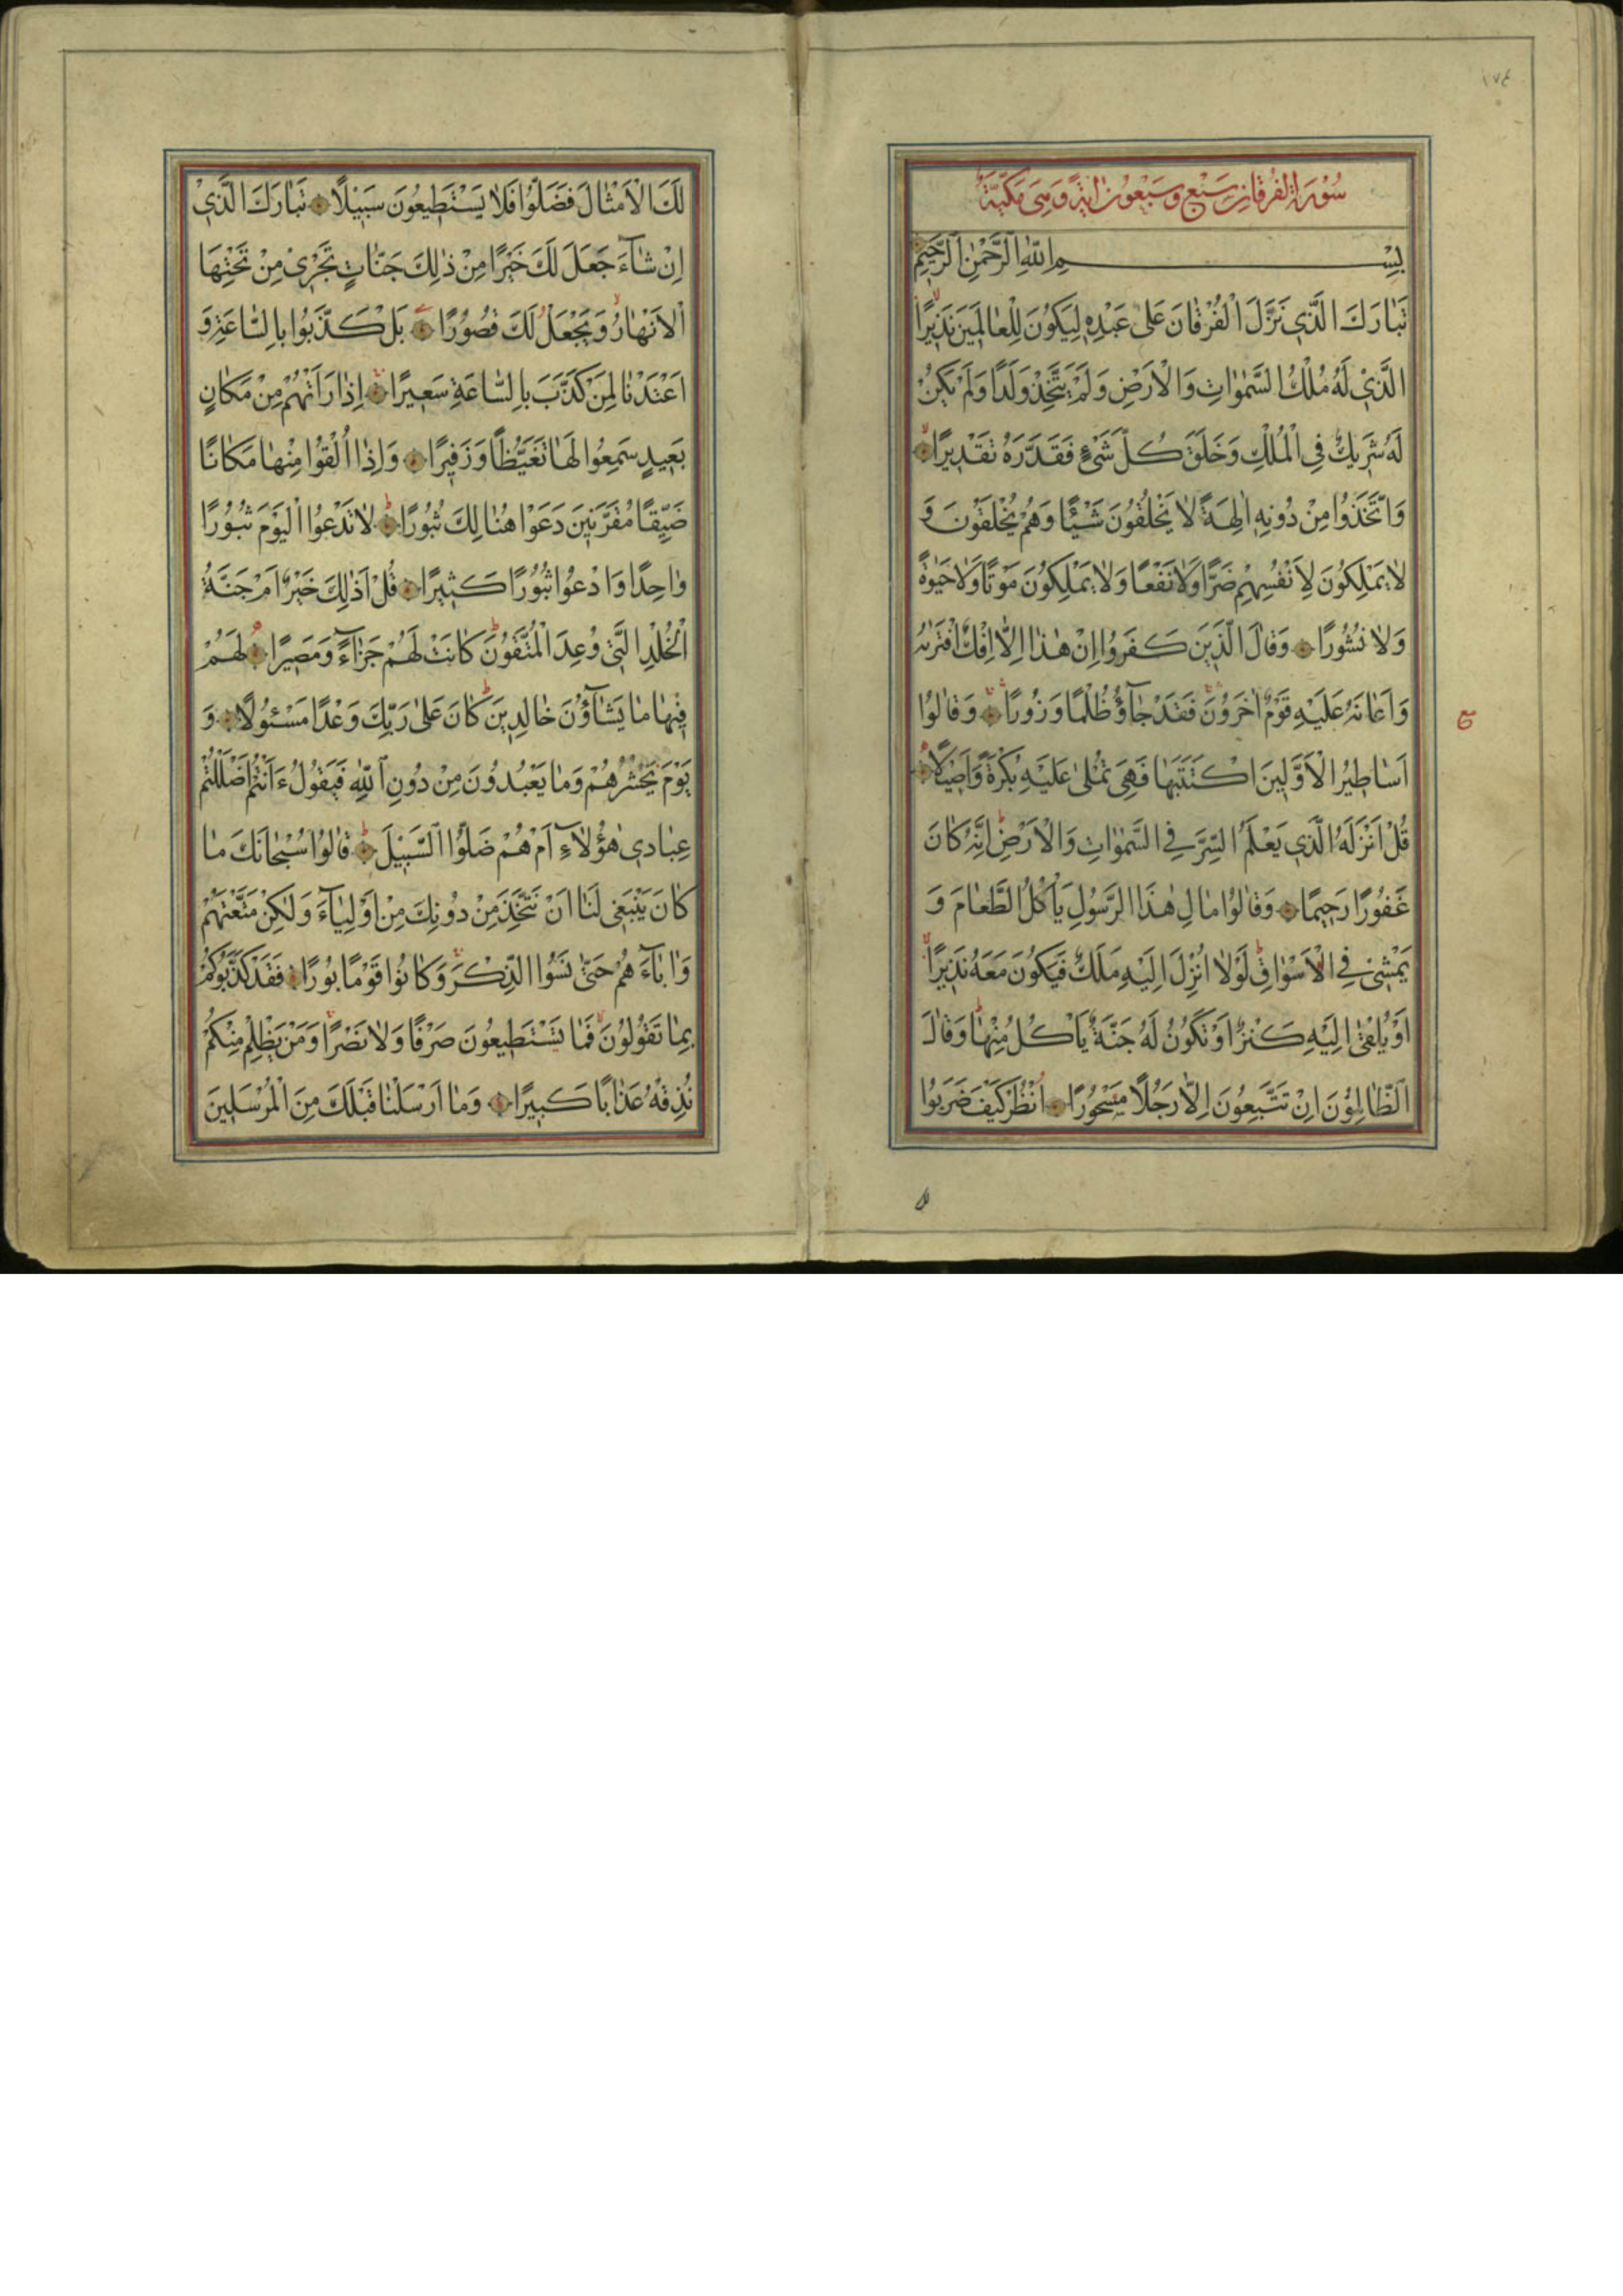 ١٧٤
سُوْرَةُ الفُرقَانِ سَبْعٌ وسَبْعُوْنَ اٰيَةً وَهِىَ مَكِّيَّةٌ
بِسْمِ اللّٰهِ الرَّحْمٰنِ الرَّحِيْمِ
تَبَارَكَ الَّذِى نَزَّلَ الْفُرْقَانَ عَلىٰ عَبْدِهٖ لِيَكُونَ لِلْعَالَمِينَ نَذِيْرًا
الَّذِىْ لَهُ مُلْكُ السَّمٰوَاتِ وَالْاَرْضِ وَلَمْ يَتَّخِذْ وَلَدًا وَلَمْ يَكُنْ
لَهُ شَرِيكٌ فِى الْمُلْكِ وَخَلَقَ كُلَّ شَىْءٍ فَقَدَّرَهُ تَقْدِيْرًا
وَاتَّخَذُوا مِنْ دُونِهٖ اٰلِهَةً لَا يَخْلُقُونَ شَيْئًا وَهُمْ يُخْلَقُونَ وَ
لَا يَمْلِكُونَ لِاَنْفُسِهِمْ ضَرًّا وَلَا نَفْعًا وَلَا يَمْلِكُونَ مَوْتًا وَلَا حَيٰوةً
وَلَا نُشُورًا وَقَالَ الَّذِينَ كَفَرُوا اِنْ هٰذَا اِلَّا اِفْكٌ افْتَرٰيهُ
وَاَعَانَهُ عَلَيْهِ قَوْمٌ اٰخَرُونَ فَقَدْ جَآؤُ ظُلْمًا وَزُورًا وَقَالُوا
ع
اَسَاطِيْرُ الْاَوَّلِينَ اكْتَتَبَهَا فَهِىَ تُمْلٰى عَلَيْهِ بُكْرَةً وَاَصِيْلًا
قُلْ اَنْزَلَهُ الَّذِى يَعْلَمُ السِّرَّ فِى السَّمٰوَاتِ وَالْاَرْضِ اِنَّهُ كَانَ
غَفُورًا رَحِيْمًا وَقَالُوْا مَالِ هٰذَا الرَّسُولِ يَاْكُلُ الطَّعَامَ وَ
يَمْشِىْ فِى الْاَسْوَاقِ لَوْلَا اُنْزِلَ اِلَيْهِ مَلَكٌ فَيَكُونَ مَعَهُ نَذِيْرًا
اَوْ يُلْقٰى اِلَيْهِ كَنْزٌ اَوْ تَكُوْنُ لَهُ جَنَّةٌ يَاْكُلُ مِنْهَا وَقَالَ
الظَّالِمُوْنَ اِنْ تَتَّبِعُونَ اِلَّا رَجُلًا مَسْحُوْرًا اُنْظُرْ كَيْفَ ضَرَبُوا
لَكَ الْاَمْثَالَ فَضَلُّوْا فَلَا يَسْتَطِيعُونَ سَبِيْلًا تَبَارَكَ الَّذِىْ
اِنْ شَآءَ جَعَلَ لَكَ خَيْرًا مِنْ ذٰلِكَ جَنَّاتٍ تَجْرِىْ مِنْ تَحْتِهَا
الْاَنْهَارُ وَيَجْعَلْ لَكَ قُصُوْرًا بَلْ كَذَّبُوا بِالسَّاعَةِ وَ
اَعْتَدْنَا لِمَنْ كَذَّبَ بِالسَّاعَةِ سَعِيرًا اِذَا رَاَتْهُمْ مِنْ مَكَانٍ
بَعِيدٍ سَمِعُوا لَهَا تَغَيُّظًا وَزَفِيْرًا وَاِذَا اُلْقُوْا مِنْهَا مَكَانًا
ضَيِّقًا مُقَرَّنِيْنَ دَعَوْا هُنَالِكَ ثُبُوْرًا لَا تَدْعُوا الْيَوْمَ ثُبُوْرًا
وَاحِدًا وَادْعُوا ثُبُوْرًا كَثِيْرًا قُلْ اَذٰلِكَ خَيْرٌ اَمْ جَنَّةُ
الْخُلْدِ الَّتِى وُعِدَ الْمُتَّقُوْنَ كَانَتْ لَهُمْ جَزَآءً وَمَصِيْرًا لَهُمْ
فِيْهَا مَا يَشَآؤُنَ خَالِدِينَ كَانَ عَلٰى رَبِّكَ وَعْدًا مَسْئُولًا وَ
يَوْمَ يَحْشُرُهُمْ وَمَا يَعْبُدُونَ مِنْ دُونِ اللّٰهِ فَيَقُولُ ءَاَنْتُمْ اَضْلَلْتُمْ
عِبَادِى هٰؤُلَاءِ اَمْ هُمْ ضَلُّوا السَّبِيْلَ قَالُوْا سُبْحَانَكَ مَا
كَانَ يَنْبَغِى لَنَا اَنْ نَتَّخِذَ مِنْ دُونِكَ مِنْ اَوْلِيَآءَ وَلٰكِنْ مَتَّعْتَهُمْ
وَاٰبَآءَ هُمْ حَتّٰى نَسُوا الذِّكْرَ وَكَانُوا قَوْمًا بُورًا فَقَدْ كَذَّبُوكُمْ
بِمَا تَقُوْلُونَ فَمَا تَسْتَطِيعُونَ صَرْفًا وَلَا نَصْرًا وَمَنْ يَظْلِمْ مِنْكُمْ
نُذِقْهُ عَذَابًا كَبِيْرًا وَمَا اَرْسَلْنَا قَبْلَكَ مِنَ الْمُرْسَلِينَ